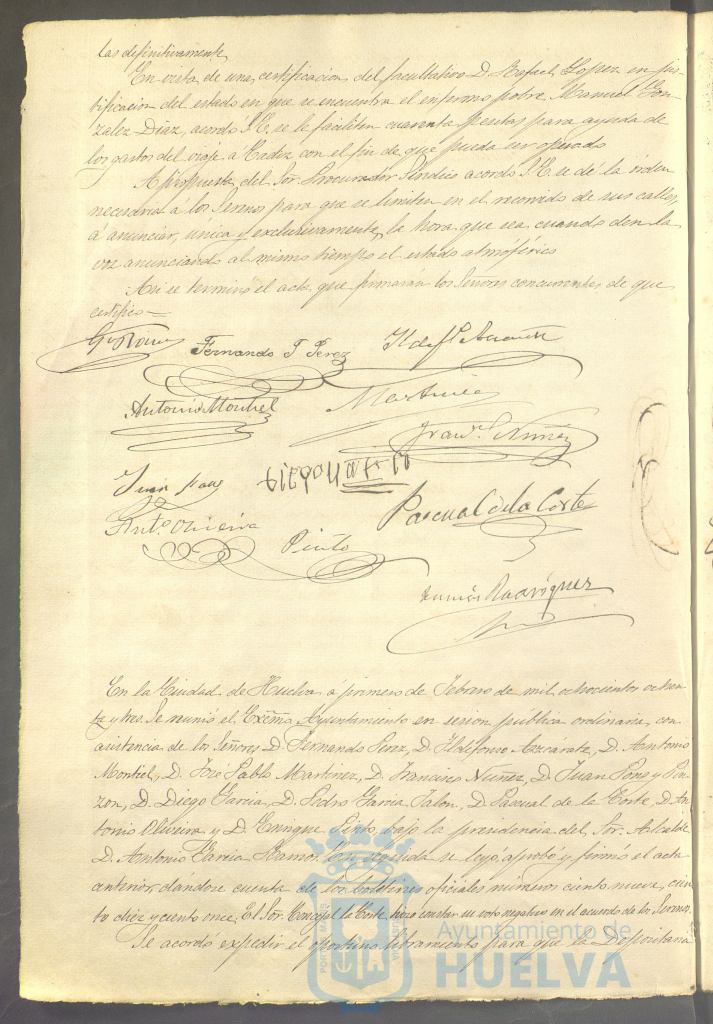 las definitivamente
En vista de una certificacion del facultativo D. Rafael Lopez en jus-
tificacion del estado en que se encuentra el enfermo pobre Manuel Gon-
zalez Diaz, acordó S.E. se le faciliten cuarenta pesetas para ayuda de
los gastos del viaje á Cadiz con el fin de que pueda ser operado
A propuesta del Sor. Procurador Sindico acordó S.E. se dé la orden
necesaria á los Serenos para que se limiten en el recorrido de sus calles,
á anunciar, unica y exclusivamente, la hora que sea cuando den la
voz anunciando al mismo tiempo el estado atmosférico
Asi se terminó el acta que firmarán los Señores concurrentes de que
certifico =
Fernando T Perez
Antonio Montiel
Martinez
Franco. Nuñez
Juan Pons
Pascual de la Corte
Anto. Oliveira
Pinto
Rodriguez
En la Ciudad de Huelva á primero de Febrero de mil ochocientos ochen-
ta y tres. Se reunió el Excmo. Ayuntamiento en sesion pública ordinaria, con
asistencia de los Señores D. Fernando Perez, D. Ildefonso Azcárate, D. Antonio
Montiel, D. José Pablo Martinez, D. Francisco Nuñez, D. Juan Pons y Pin-
zon, D. Diego Garcia, D. Pedro Garcia Jalon, D. Pascual de la Corte, D. An-
tonio Oliveira y D. Enrique Pinto, bajo la presidencia del Sor. Alcalde
D. Antonio Garcia Ramos. En seguida se leyó, aprobó y firmó el acta
anterior, dándose cuenta de los boletines oficiales números ciento nueve, cien-
to diez y ciento once. El Sor. Concejal la Corte hizo constar su voto negativo en el acuerdo de los Serenos.
Se acordó expedir el oportuno libramiento para que la Depositaria
Ayuntamiento de
HUELVA